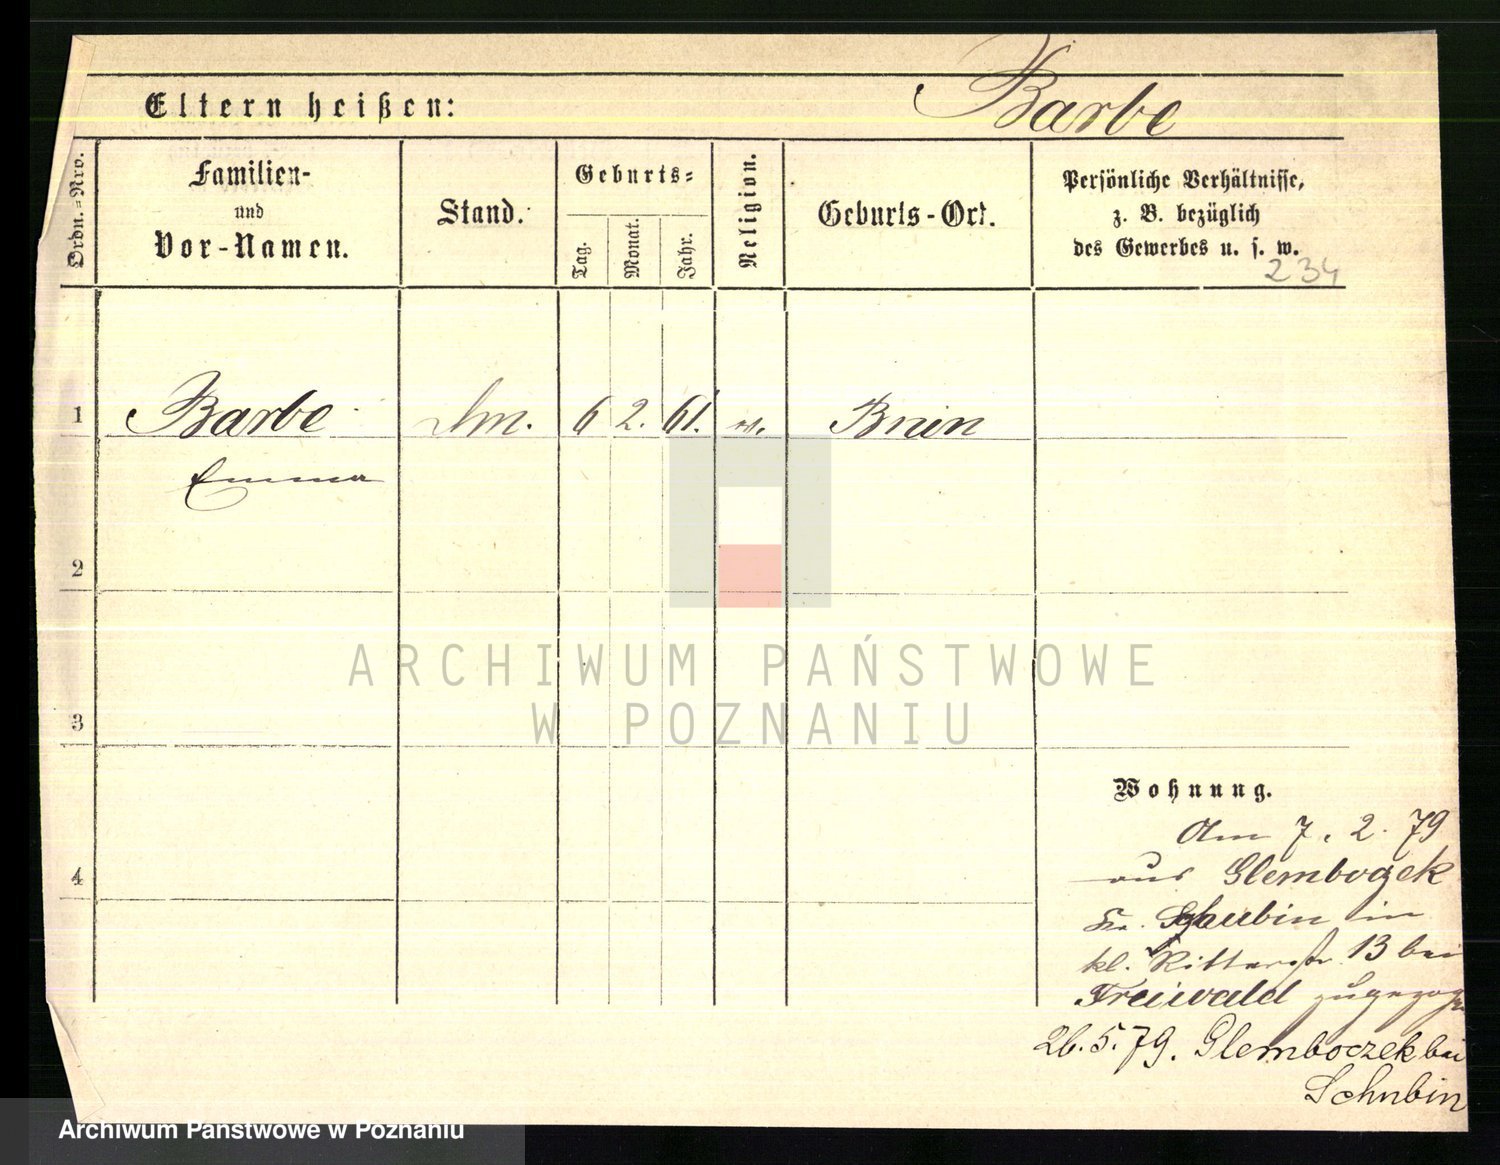 Eltern heißen: Barbe
Ordn.=Nro.
Familien-
und
Vor-Namen.
Stand.
Geburts=
Tag.
Monat.
Jahr.
Religion.
Geburts-Ort.
Persönliche Verhältnisse,
z. B. bezüglich
des Gewerbes u. s. w.
234
1 Barbe 6 2. 61. Bnin
Emma
2
3
4
ARCHIWUM PAŃSTWOWE
W POZNANIU
Wohnung.
Am 7. 2. 79
aus Glembozek
Kr. Schubin in
kl. Ritterstr. 13 bei
Freiwald zugezogen
26. 5. 79. Glemboczek bei
Schubin
Archiwum Państwowe w Poznaniu